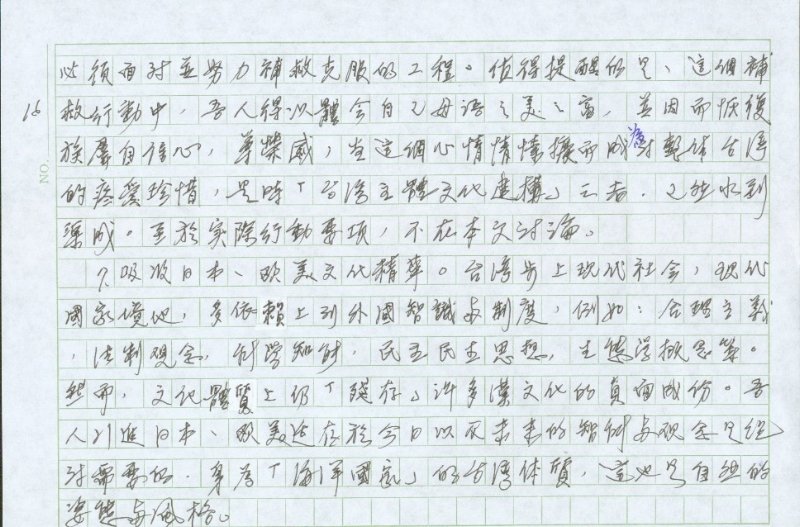 必須面對並努力補救克服的工程。值得提醒的是、這個補
16 救行動中，吾人得以體會自己母語之美之富，並因而恢復
族羣自信心，尊榮感，當這個心情情懷擴而成為對整体台灣
的疼愛珍惜，是時「台灣主體文化建構」云者，已然水到
渠成。至於實際行動要項，不在本文討論。
7. 吸收日本、歐美文化精華。台灣步上現代社会，現代
國家境地，多依賴上列外國智識与制度，例如：合理主義
，法制观念，科学知財，民主民主思想，生態学概念等。
然而，文化體質上仍「殘存」許多漢文化的負面成份。吾
人引進日本、歐美迄在於今日以及未來的智財与观念是絕
对需要的。身為「海洋國家」的台湾体質，這也是自然的
姿態与風格。
NO.